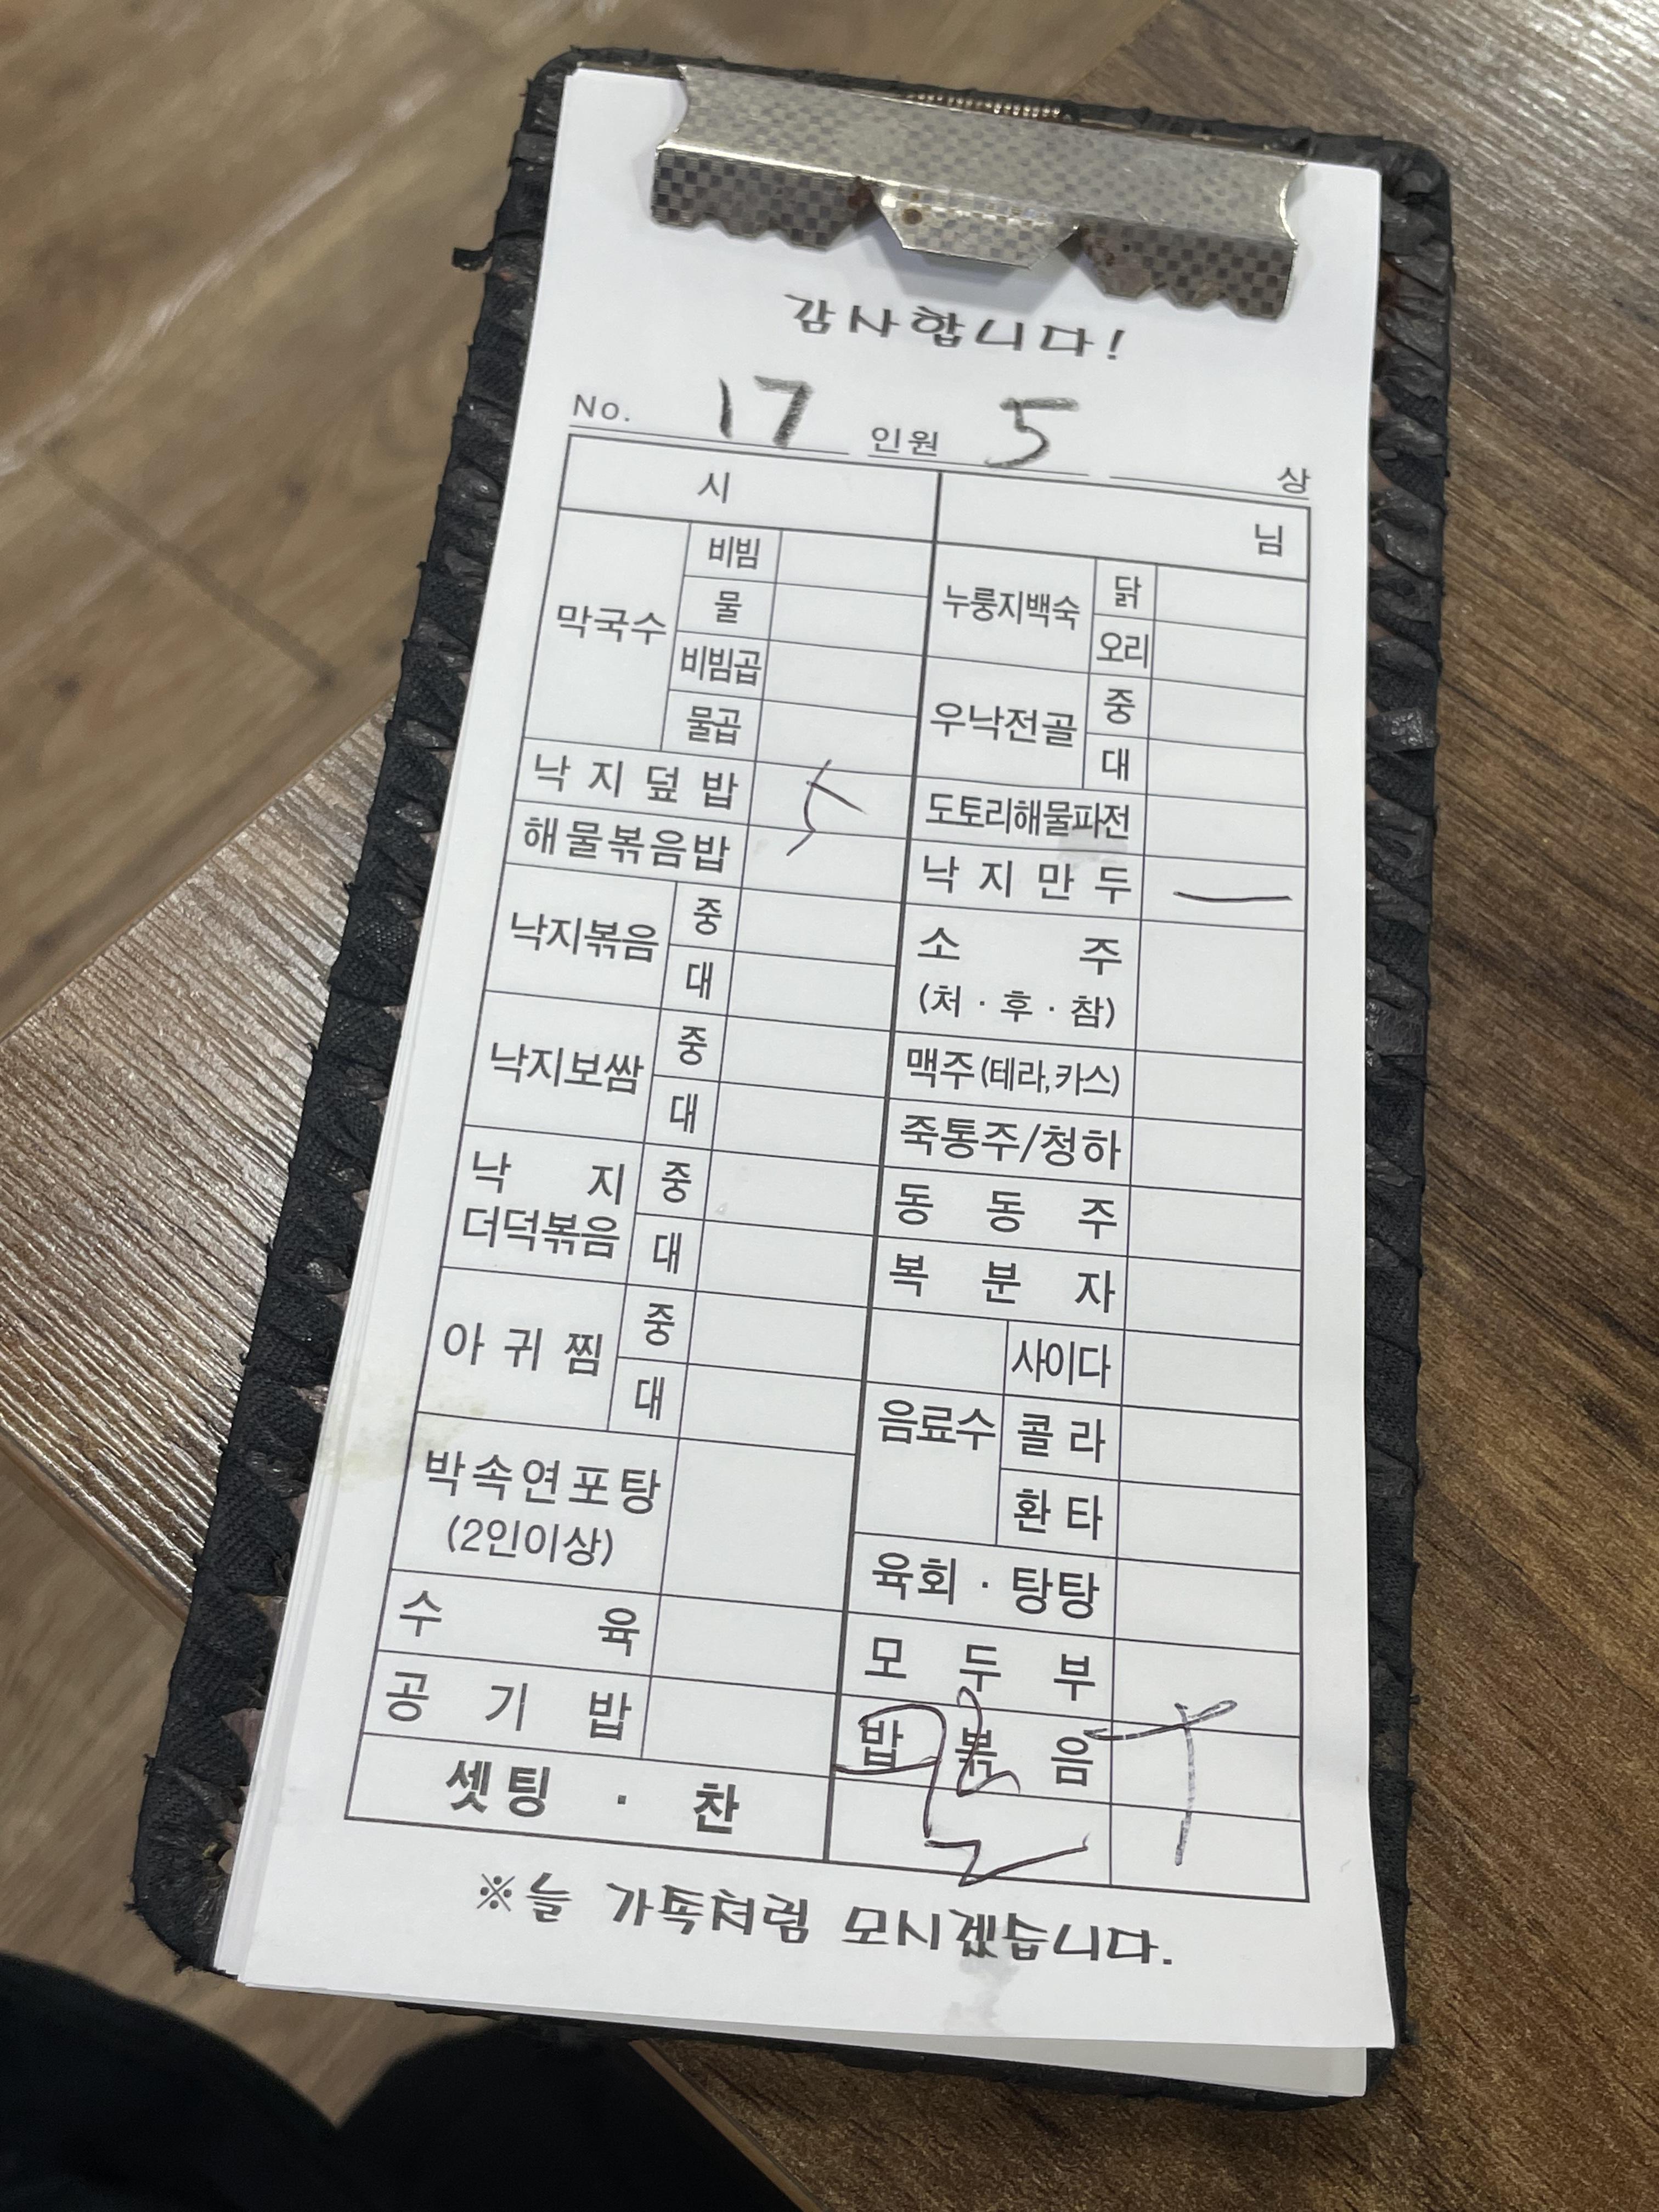 감사합니다!
No. 17 인원 5 상
시 님
막국수
비빔
물
비빔곱
물곱
낙지덮밥
해물볶음밥
낙지볶음
중
대
낙지보쌈
중
대
낙지
더덕볶음
중
대
아귀찜
중
대
박속연포탕
(2인이상)
수육
공기밥
셋팅 · 찬
누룽지백숙
닭
오리
우낙전골
중
대
도토리해물파전
낙지만두 一
소주
(처 · 후 · 참)
맥주(테라,카스)
죽통주/청하
동동주
복분자
음료수
사이다
콜라
환타
육회 · 탕탕
모두부
밥볶음
※늘 가족처럼 모시겠습니다.